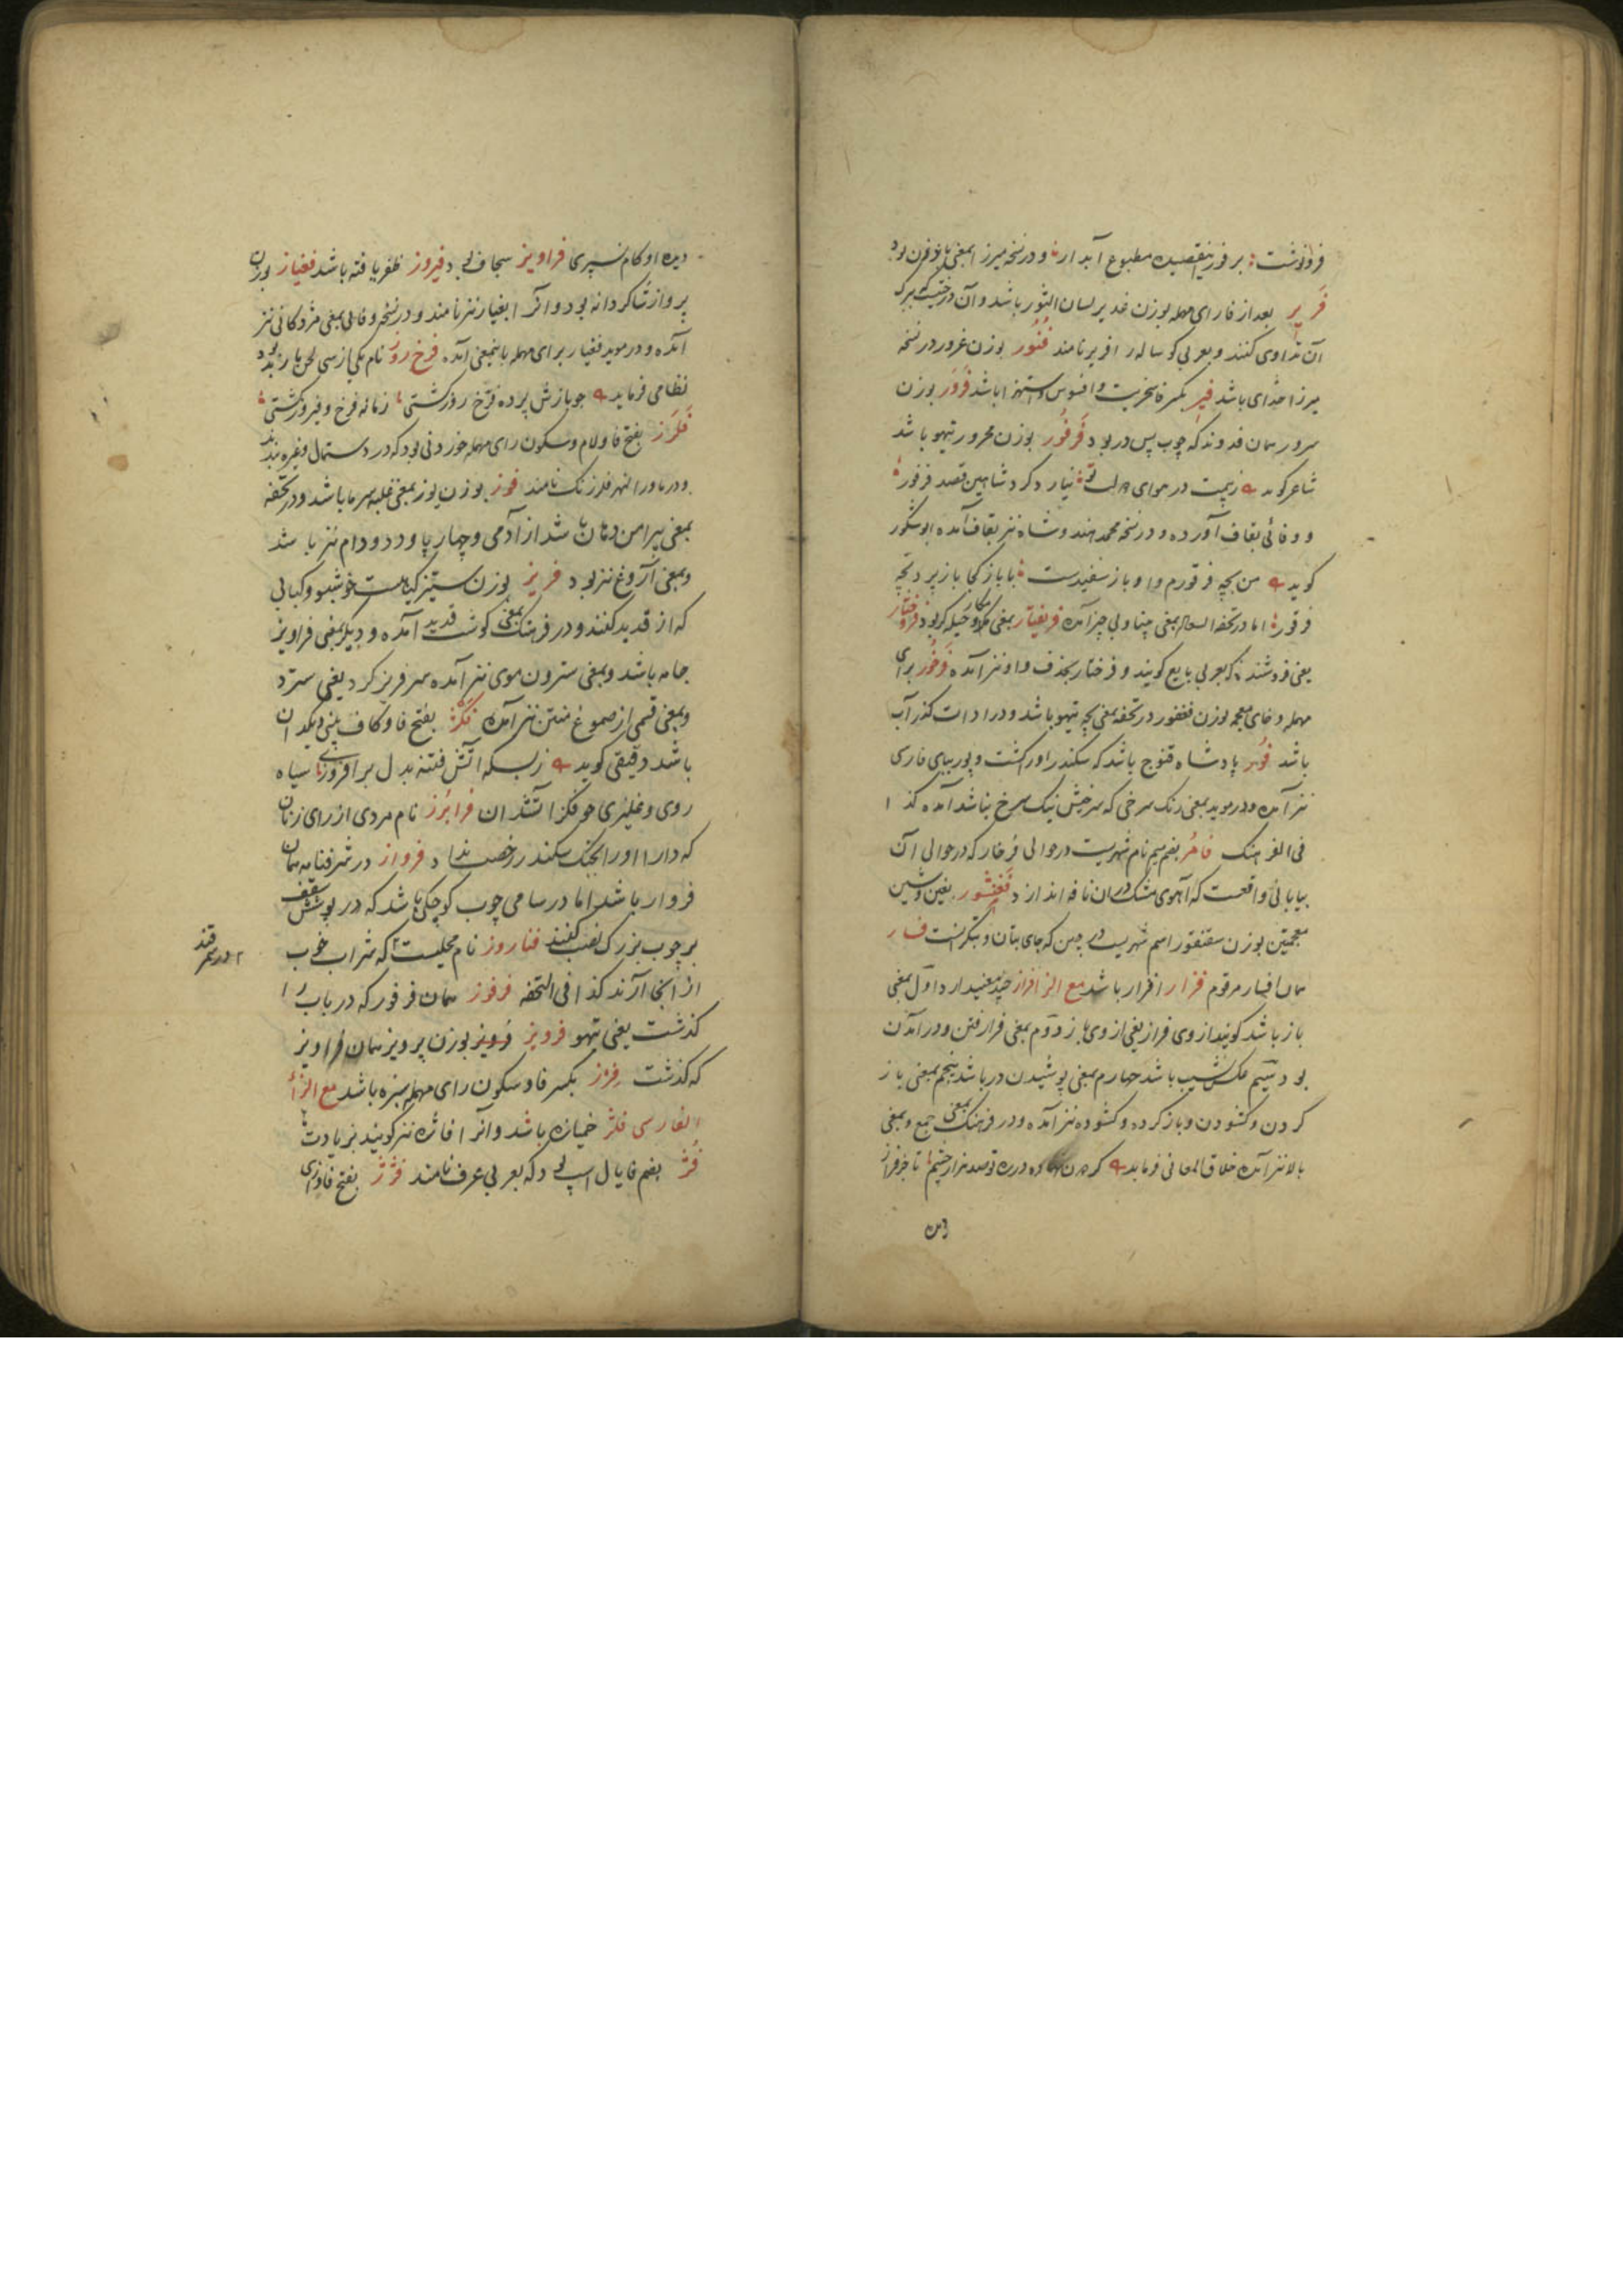 فرو نوشت؛ بر فور این قصیده مطبوع آبدار؛ و در نسخه میرزا بمعنی بود
فریر بعد از فا رای مهمله بوزن غدیر لسان الثور باشد و آن برک
آن تداوی کنند و بعربی کو ساله را فریر نامند فنور بوزن غرور در نسخه
میرزا خدای باشد فیر بکسر فا سخریت و افسوس و استهزا باشد فرور بوزن
سرور همان فدوند که چوب پس در بود فرفور بوزن محرور تیهو باشد
شاعر کوید در هوای نیارد کرد شاهین قصد فرفور
و وفائی بقاف آورده و در نسخه محمد هندوشاه نیز بقاف آمده ابوشکور
کوید من بچه فرفورم و او باز سفیدست؛ با باز کجا باز پرد بچه
فرفور؛ اما در تحفه السعاده بمعنی آمده فریفتار بمعنی مکار و حیله کر بود فروختار
یعنی فروشنده که بعربی بایع کویند و فرختار بحذف واو نیز آمده فرخور برای
مهمله و خای معجمه بوزن فغفور در تحفه بمعنی بچه تیهو باشد و در ادات کذر آب
باشد فور پادشاه قنوج باشد که سکندر او را کشت و پور ببای فارسی
نیز آمده و در موید بمعنی رنک سرخی که سرخیش نیک سرخ نباشد آمده کذا
فی الفرهنک فامر بضم میم نام شهریست در حوالی فرخار که در حوالی آن
بیابانی واقعست که آهوی مشک در ان نافه اندازد فغنشور بغین و شین
معجمتین بوزن سقنقور اسم شهریست در چین که جای بتان و بتکرانست فسار
همان افسار مرقوم فزار افزار باشد مع الزا فراز چند معنی دارد اول بمعنی
باز باشد کویند از وی فراز یعنی از وی باز دوم بمعنی فرا رفتن و در آمدن
بود سیم عکس نشیب باشد چهارم بمعنی پوشیدن در باشد پنجم بمعنی باز
کردن و کشودن و باز کرده و کشوده نیز آمده و در فرهنک بمعنی جمع و بمعنی
بالا نیز آمده خلاق المعانی فرماید که در ره تو صد هزار چشم؛ تا جز فراز
دیده او کام نسپری فراویز سجاف بود فیروز ظفر یافته باشد فغیاز بوزن
پرواز شاکردانه بود و آنرا بغیاز نیز نامند و در نسخه وفائی بمعنی مژدکانی نیز
آمده و در موید فغیار برای مهمله باینمعنی آمده فرخ روز نام یکی از سی لحن باربد بود
نظامی فرماید چو بازش پرده فرخ روز کشتی؛ زمانه فرخ و فیروز کشتی؛
فلرز بفتح فا و لام و سکون رای مهمله خوردنی بود که در دستمال و غیره بندند
و در ماورا النهر فلرزنک نامند فوز بوزن یوز بمعنی غلبه سرما باشد و در تحفه
بمعنی پیرامن دهان باشد از آدمی و چهار پا و دد و دام نیز باشد
و بمعنی آروغ نیز بود فریز بوزن ستیز کیاهیست خوشبو و کبابی
که از قدید کنند و در فرهنک بمعنی کوشت قدید آمده و دیکر بمعنی فراویز
جامه باشد و بمعنی سترون موی نیز آمده سر فریز کرد یعنی سترد
و بمعنی قسمی از صموغ منتن نیز آمده فکز بفتح فا و کاف یعنی دیکدان
باشد دقیقی کوید ز بسکه آتش فتنه بدل بر افروزی؛ سیاه
روی و غلیژی چو فکز آتشدان فرابرز نام مردی از رای زنان
که دارا او را بجنک سکندر رخصت نداد فرواز در شرفنامه همان
فروار باشد اما در سامی چوب کوچکی باشد که در پوشش سقف
بر چوب بزرک نصب کنند فناروز نام محلیست که شراب خوب
در سمرقند
از آنجا آرند کذا فی التحفه فرفوز همان فرفور که در باب را
کذشت یعنی تیهو فرویز بوزن پرویز همان فراویز
که کذشت فرز بکسر فا و سکون رای مهمله سبزه باشد مع الزا
الفارسی فاژ خمیازه باشد و آنرا فاژه نیز کویند بزیادت
فژ بضم فا یال اسپ بود که بعربی عرف نامند فژژ بفتح فا و زای